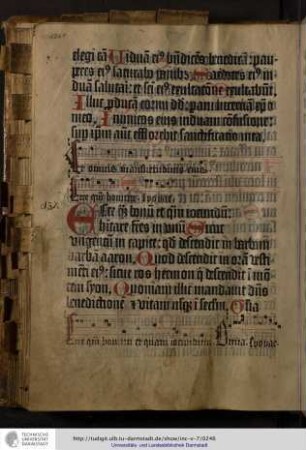 elegi cā Uiduā ei9 bn̄dicēs benedicā: pau-
peres ei9 saturabo panib9 Sacerdotes ei9 in-
duā salutari: et sci ei9 exultacōe exultabūt
Illuc ꝓducā cornu dd: paraui lucernā xp̄o
meo Inimicos eius induam cōfusione:
sup ip̄m aūt efflorebit sanctificatio mea
Et omnis mansuetudinis eius
Ecce quā bonū et quā iocundū:
habitare frēs in unū Sicut
unguentū in capite: qd̄ descendit in barbam
barbā aaron Quod descendit in orā vesti-
mēti ei9: sicut ros hermon qui descendit ī mō-
tem syon Quoniam illic mandauit dūs
benedictionē: et vitam usq; in seculū
Ecce quā bonū et quam iocundum
http://tudigit.ulb.tu-darmstadt.de/show/inc-v-7/0246
Universitäts- und Landesbibliothek Darmstadt
TECHNISCHE
UNIVERSITÄT
DARMSTADT